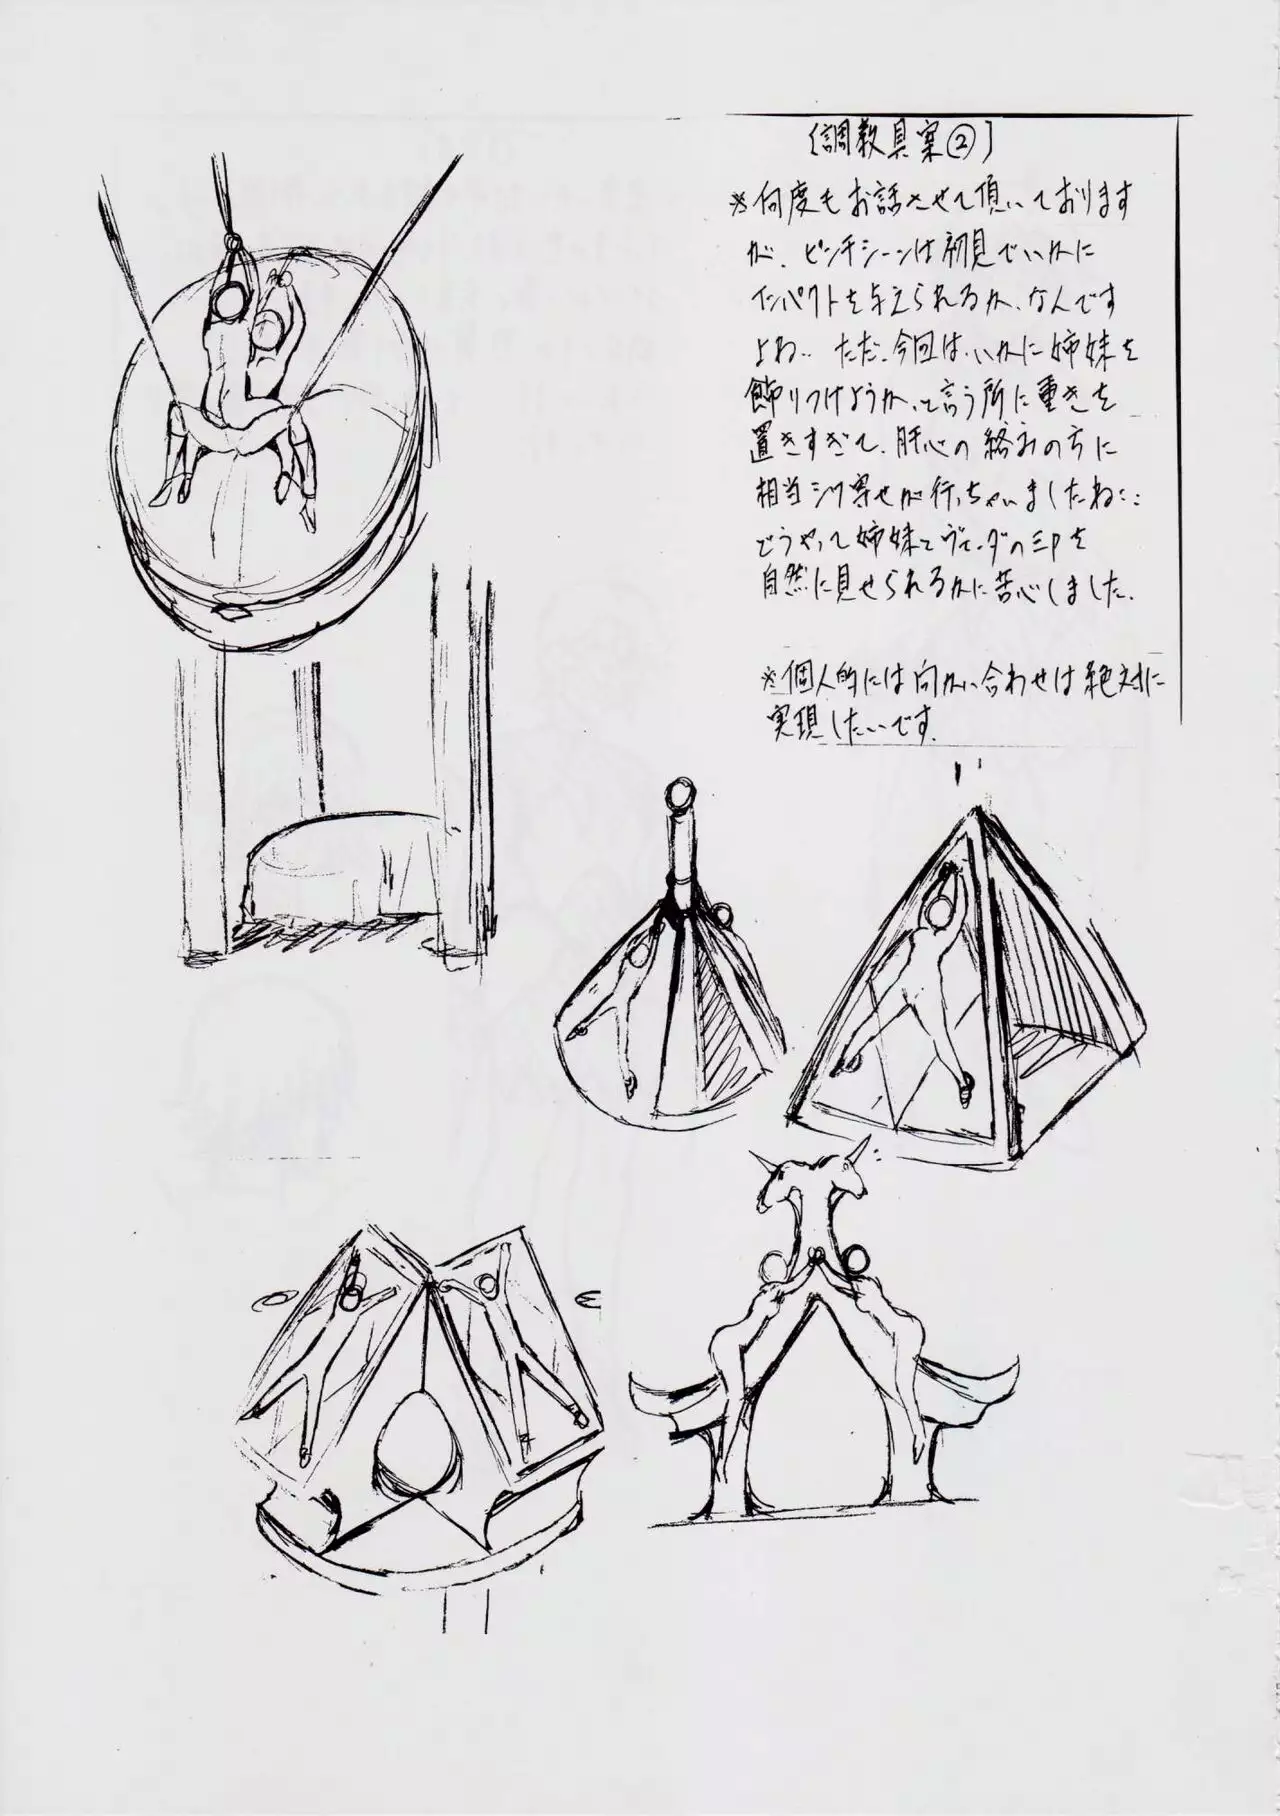 〔調教具案②〕
※何度もお話させて頂いております
が、ピンチシーンは初見でいかに
インパクトを与えられるか、なんです
よね‥ただ、今回は、いかに姉妹を
飾りつけようか、と言う所に重きを
置きすぎて、肝心の絡みの方に
相当シワ寄せが行っちゃいましたね‥
どうやって姉妹とヴェーダの三Pを
自然に見せられるかに苦心しました.
※個人的には向かい合わせは絶対に
実現したいです.